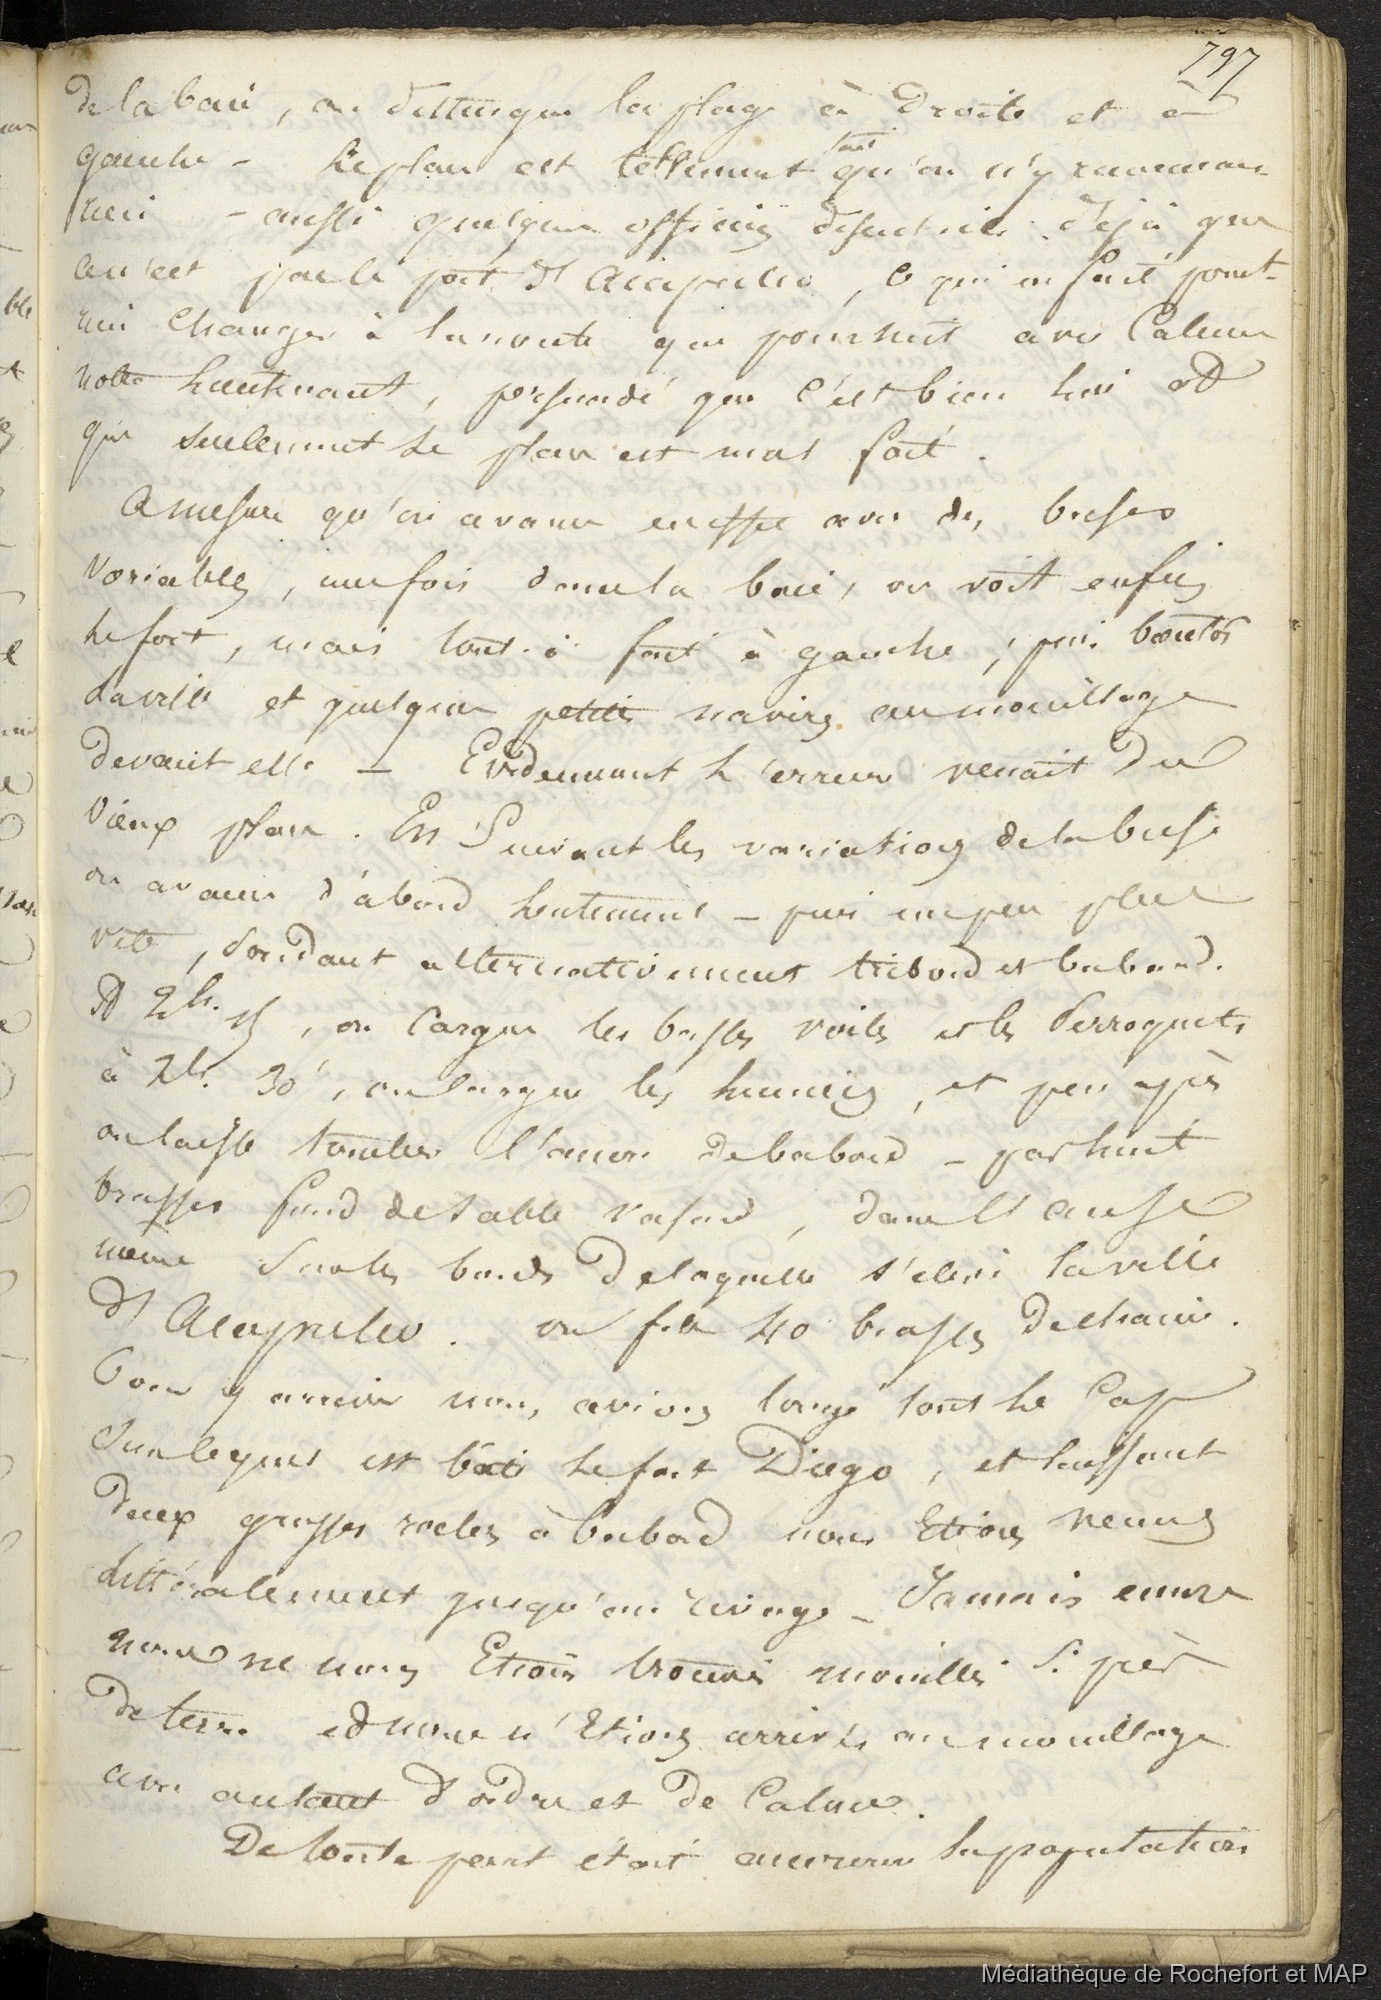 797
de la baie, on distingue la plage à droite et à
gauche - le plan est tellement faux qu'on n'y reconnait
rien - aussi quelques officiers disent ils déjà que
ce n'est pas le port d'Acapulco, ce qui ne fait pourt-
rien changer à la route que poursuit avec calme
notre lieutenant, persuadé que c'est bien lui et
que seulement le plan est mal fait.
A mesure qu'on avance en effet avec des brises
variables, une fois dans la baie, on voit enfin
le fort, mais tout à fait à gauche, puis bientôt
la ville et quelques petits navires au mouillage
devant elle - Evidemment l'erreur venait du
vieux plan. En suivant les variations de la brise
on avance d'abord lentement - puis un peu plus
vite, sondant alternativement tribord et babord.
A 2h. 15, on cargue les basses voiles et les perroquets
à 2h. 30', on largue les huniers, et peu après
on laisse tomber l'ancre de babord - par huit
brasses fond de sable vasard, dans l'anse
même sur les bords de laquelle s'élève la ville
d'Acapulco. on fila 40 brasses de chaine.
Pour y arriver nous avions longé tout le cap
sur lequel est bâti le fort Diego, et laissant
deux grosses roches à babord nous étions venus
littéralement jusqu'au rivage - Jamais encore
nous ne nous étions trouvés mouillés si près
de terre et nous n'étions arrivés au mouillage
avec autant d'ordre et de calme.
De toute part était accourue la population
Médiathèque de Rochefort et MAP